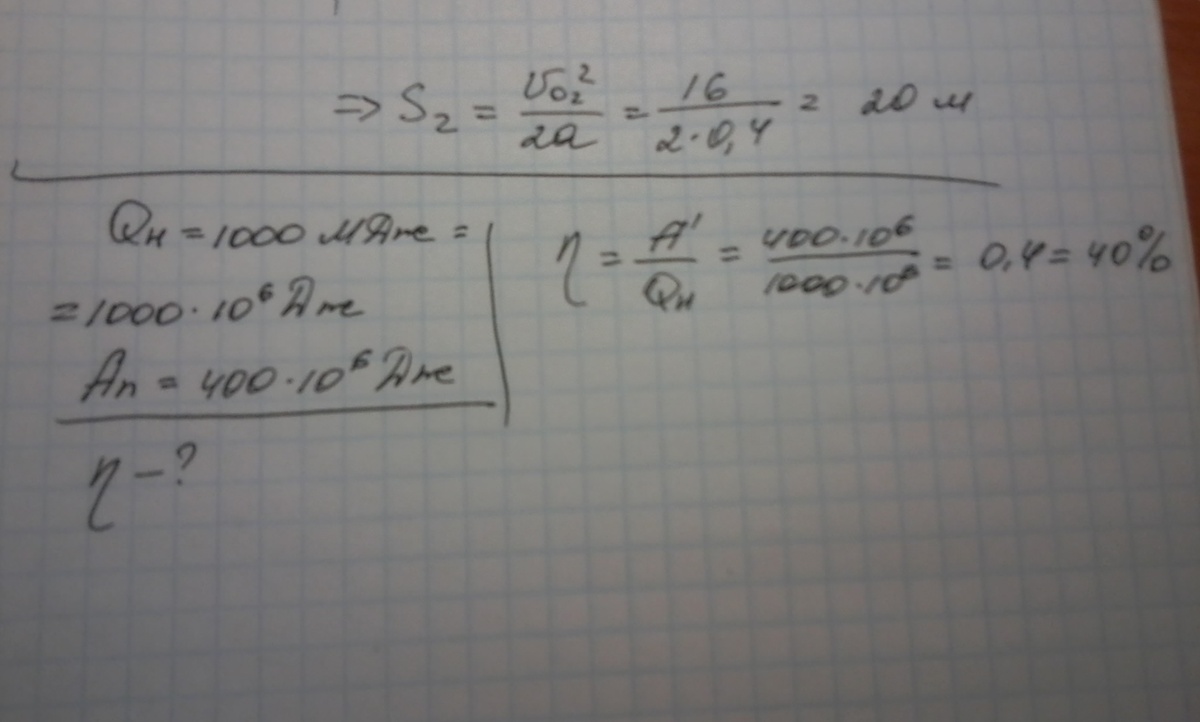 ⇒ S₂ = υ₀₂²/2a = 16/2·0,4 = 20 м
Qн = 1000 МДж =
= 1000·10⁶ Дж
Aп = 400·10⁶ Дж
η - ?
η = A'/Qн = 400·10⁶/1000·10⁶ = 0,4 = 40%